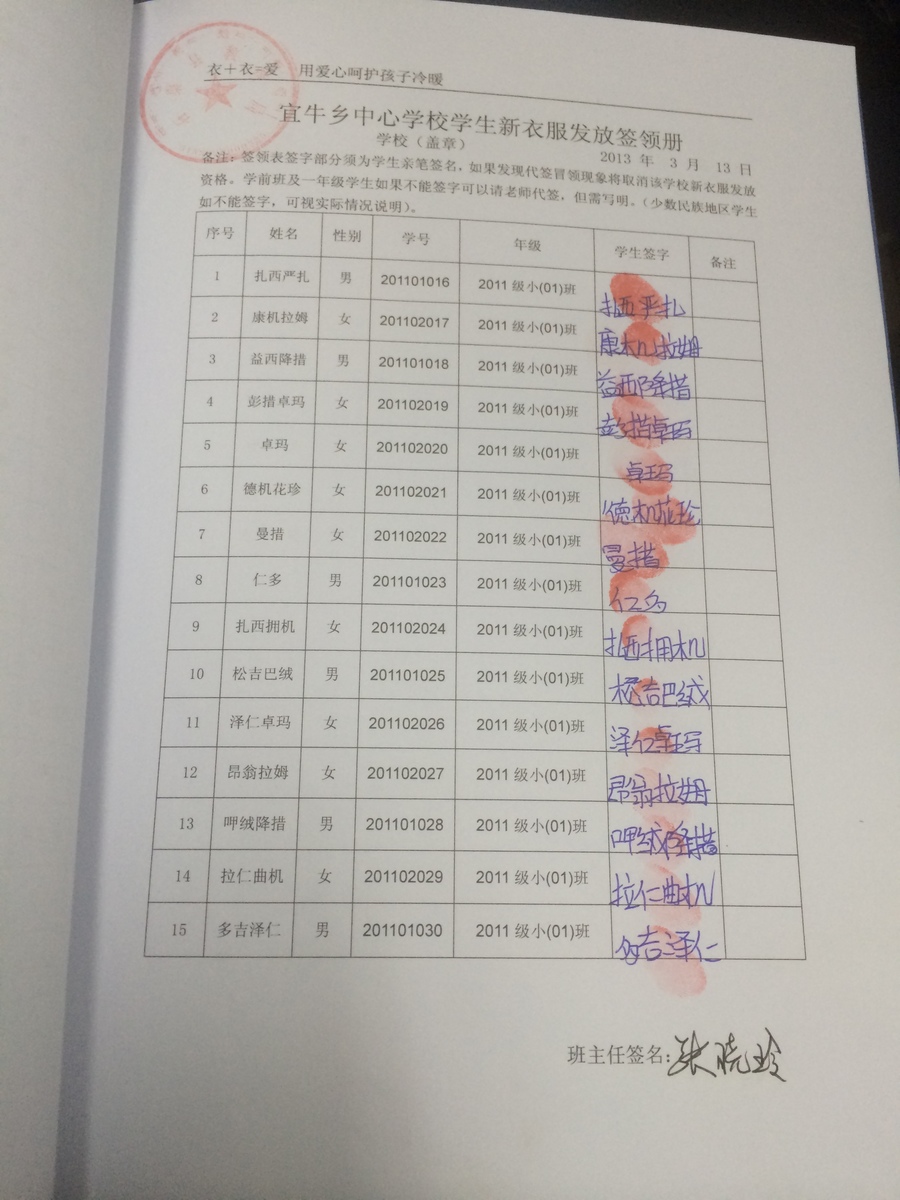 衣+衣=爱 用爱心呵护孩子冷暖
宜牛乡中心学校学生新衣服发放签领册
学校（盖章） 2013 年 3 月 13 日
备注：签领表签字部分须为学生亲笔签名，如果发现代签冒领现象将取消该学校新衣服发放
资格。学前班及一年级学生如果不能签字可以请老师代签，但需写明。（少数民族地区学生
如不能签字，可视实际情况说明）。
序号 姓名 性别 学号 年级 学生签字 备注
1 扎西严扎 男 201101016 2011 级小(01)班 扎西严扎
2 康机拉姆 女 201102017 2011 级小(01)班 康机拉姆
3 益西降措 男 201101018 2011 级小(01)班 益西降措
4 彭措卓玛 女 201102019 2011 级小(01)班 彭措卓玛
5 卓玛 女 201102020 2011 级小(01)班 卓玛
6 德机花珍 女 201102021 2011 级小(01)班 德机花珍
7 曼措 女 201102022 2011 级小(01)班 曼措
8 仁多 男 201101023 2011 级小(01)班 仁多
9 扎西拥机 女 201102024 2011 级小(01)班 扎西拥机
10 松吉巴绒 男 201101025 2011 级小(01)班 松吉巴绒
11 泽仁卓玛 女 201102026 2011 级小(01)班 泽仁卓玛
12 昂翁拉姆 女 201102027 2011 级小(01)班 昂翁拉姆
13 呷绒降措 男 201101028 2011 级小(01)班 呷绒降措
14 拉仁曲机 女 201102029 2011 级小(01)班 拉仁曲机
15 多吉泽仁 男 201101030 2011 级小(01)班 多吉泽仁
班主任签名：张晓玲